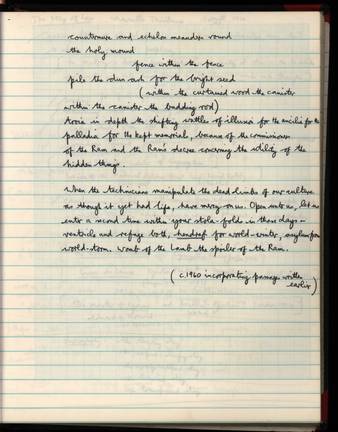 countermure and echelon meanders round
the holy mound
fence within the fence
pile the dun ash for the bright seed
(within the curtained wood the canister
within the canister the budding rod)
troia in depth the shifting wattles of illusion for the ancilia for the
palladia for the kept memorial, because of the commissioners
of the Ram and the Ram's decree concerning the utility of the
hidden things.
When the technicians manipulate the dead limbs of our culture
as though it yet had life, have mercy on us. Open unto us, let us
enter a second time within your stola-folds in those days –
ventricle and refuge both, hendref for world-winter, asylum from
world-storm. Womb of the Lamb the spoiler of the Ram.
(c.1960 incorporating passages written
earlier)